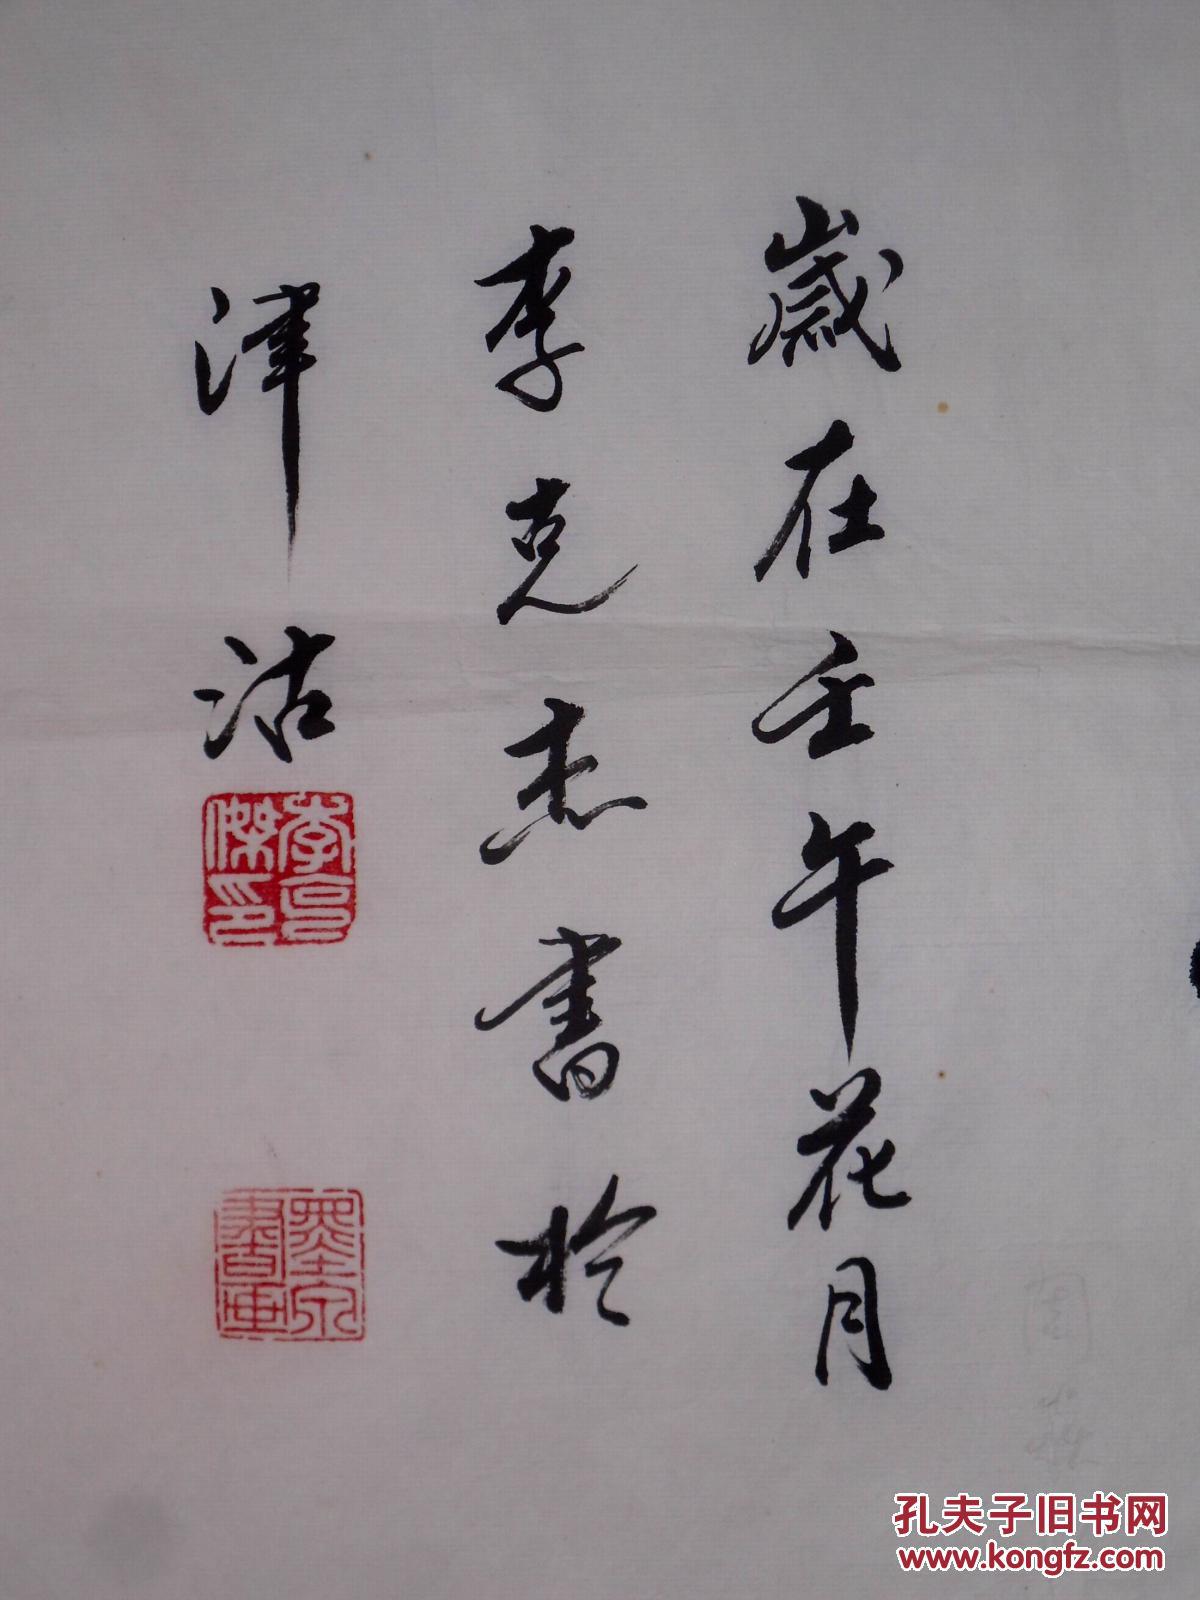 歲在壬午花月
李克杰書於
津沽
李克
傑印
孔夫子旧书网
www.kongfz.com